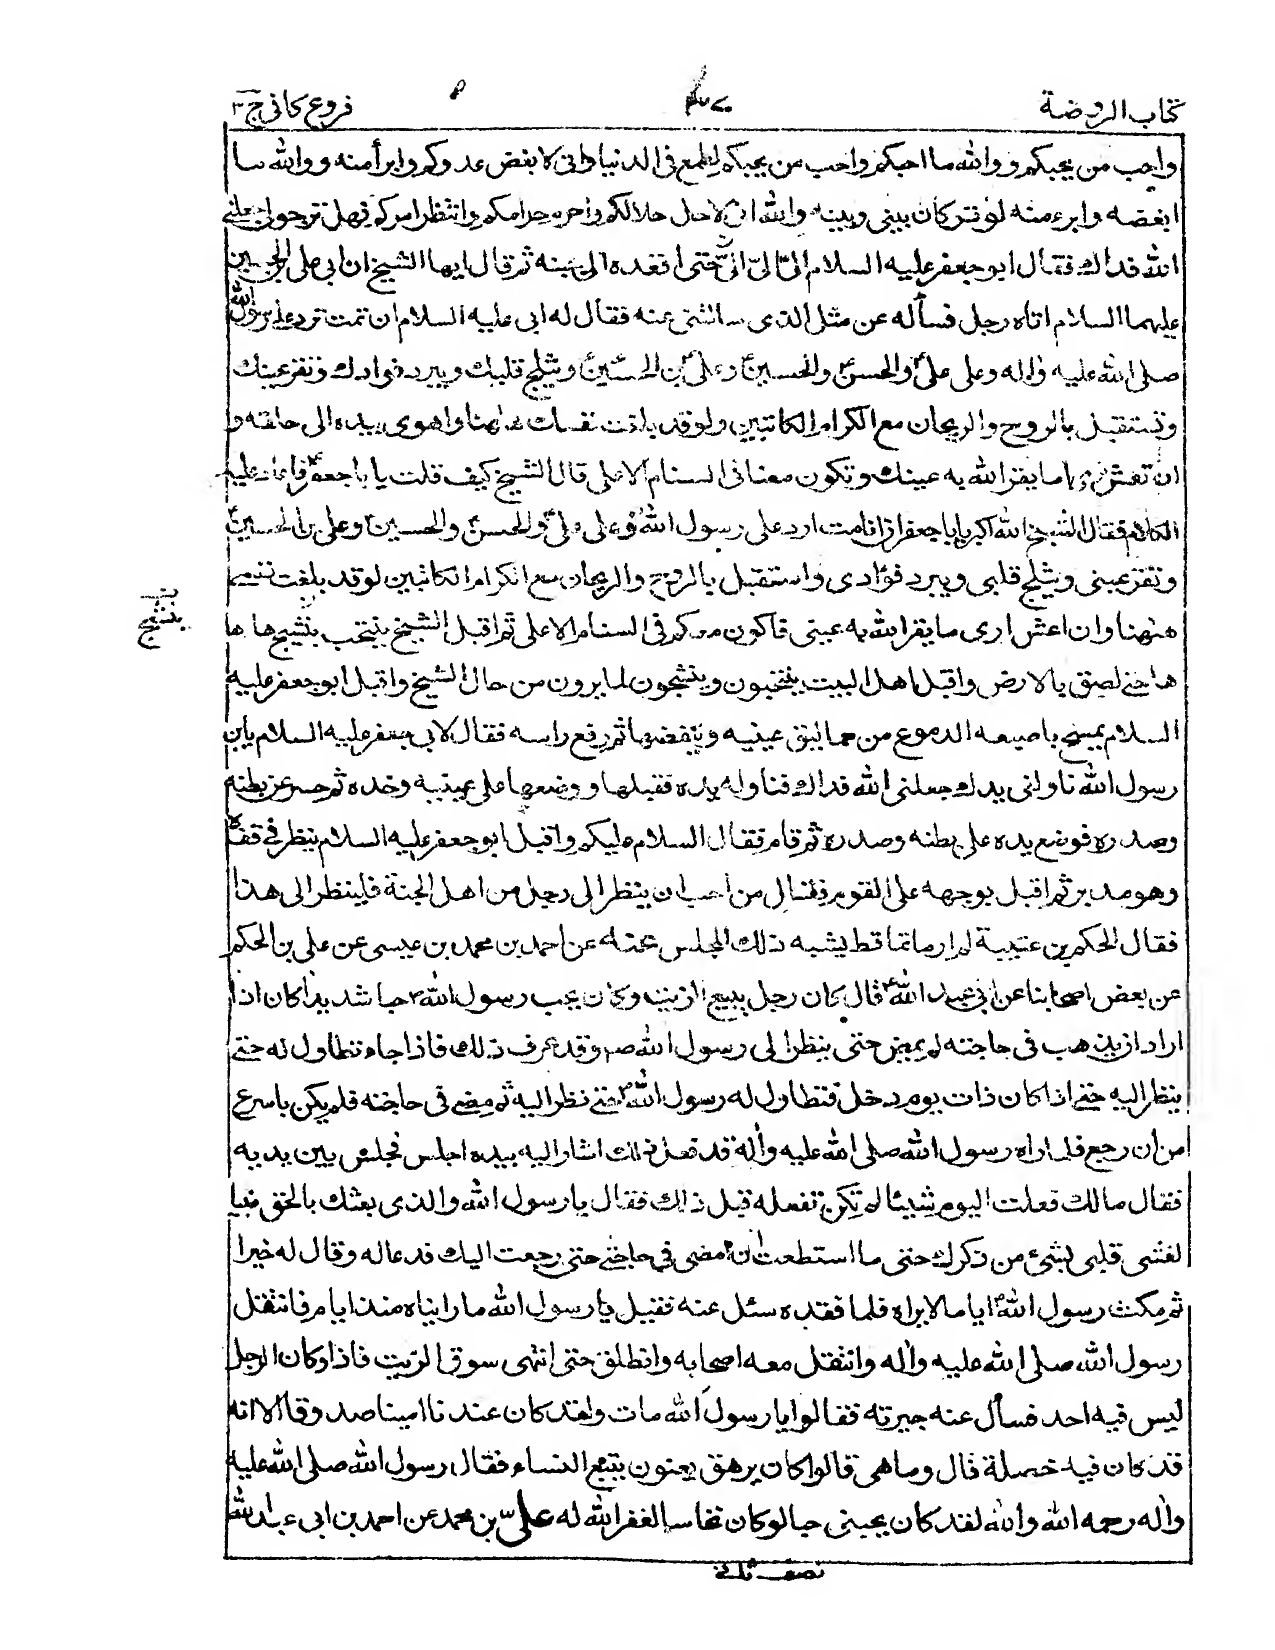 كتاب الروضة
فروع كافى ج ٣
واحب من يحبكم ووالله ما احبكم واحب من يحبكم لطمع فى الدنيا وانى لابغض عدوكم وابرأ منه ووالله ما
ابغضه وابرء منه لوتر كان بينى وبينه والله انى لاحل حلالكم واحرم حرامكم وانتظر امركم فهل ترجو لى جعلنى
الله فداك فقال ابو جعفر عليه السلام الىّ الىّ حتى اقعده الى جنبه ثم قال ايها الشيخ ان ابى على بن الحسين
عليهما السلام اتاه رجل فسأله عن مثل الذى سالتنى عنه فقال له ابى عليه السلام ان تمت ترد على رسول الله
صلى الله عليه واله وعلى علىؑ والحسنؑ والحسينؑ وعلى بن الحسينؑ ويثلج قلبك ويبرد فوادك وتقر عينك
وتستقبل بالروح والريحان مع الكرام الكاتبين ولو قد بلغت نفسك هاهنا واهوى بيده الى حلقه و
ان تعش ترى ما يقر الله به عينك وتكون معنا فى السنام الاعلى قال الشيخ كيف قلت يا با جعفر فاعاد عليه
الكلام فقال الشيخ الله اكبر يا با جعفر ان انا مت ارد على رسول الله وعلى علىؑ والحسنؑ والحسينؑ وعلى بن الحسينؑ
وتقر عينى ويثلج قلبى ويبرد فوادى واستقبل بالروح والريحان مع الكرام الكاتبين لو قد بلغت نفسى
ههنا وان اعش ارى ما يقر الله به عينى فاكون معكم فى السنام الاعلى ثم اقبل الشيخ ينتحب ينشج ها ها
ها حتى لصق بالارض واقبل اهل البيت ينتحبون وينشجون لما يرون من حال الشيخ واقبل ابو جعفر عليه
السلام يمسح باصبعه الدموع من حماليق عينيه وينفضها ثم رفع راسه فقال لابى جعفر عليه السلام يا بن
رسول الله ناولنى يدك جعلنى الله فداك فناوله يده فقبلها ووضعها على عينيه وخده ثم حسر عن بطنه
وصدره فوضع يده على بطنه وصدره ثم قام فقال السلام عليكم واقبل ابو جعفر عليه السلام ينظر فى قفاه
وهو مدبر ثم اقبل بوجهه على القوم فقال من احب ان ينظر الى رجل من اهل الجنة فلينظر الى هذا
فقال الحكم بن عتيبة لم ار ماتما قط يشبه ذلك المجلس عنه عن احمد بن محمد بن عيسى عن على بن الحكم
عن بعض اصحابنا عن ابى عبد الله قال كان رجل يبيع الزيت وكان يحب رسول الله حبا شديدا كان اذا
اراد ان يذهب فى حاجته لم يمض حتى ينظر الى رسول الله صم وقد عرف ذلك فاذا جاء تطاول له حتى
ينظر اليه حتى اذا كان ذات يوم دخل فتطاول له رسول الله حتى نظر اليه ثم مضى فى حاجته فلم يكن باسرع
من ان رجع فلما راه رسول الله صلى الله عليه واله قد فعل ذلك اشار اليه بيده اجلس فجلس بين يديه
فقال مالك فعلت اليوم شيئا لم تكن تفعله قبل ذلك فقال يا رسول الله والذى بعثك بالحق نبيا
لغشى قلبى بشئ من ذكرك حتى ما استطعت ان امضى فى حاجتى حتى رجعت اليك فدعا له وقال له خيرا
ثم مكث رسول الله اياما لا يراه فلما فقده سئل عنه فقيل يا رسول الله ما رايناه منذ ايام فانتقل
رسول الله صلى الله عليه واله وانتقل معه اصحابه وانطلق حتى انتهى سوق الزيت فاذا دكان الرجل
ليس فيه احد فسأل عنه جيرته فقالوا يا رسول الله مات ولقد كان عندنا امينا صدوقا الا انه
قد كان فيه خصلة قال وما هى قالوا كان يرهق يعنون يتبع النساء فقال رسول الله صلى الله عليه
واله رحمه الله والله لقد كان يحبنى حبا لو كان نخاسا لغفر الله له على بن محمد عن احمد بن ابى عبد الله
ينشج